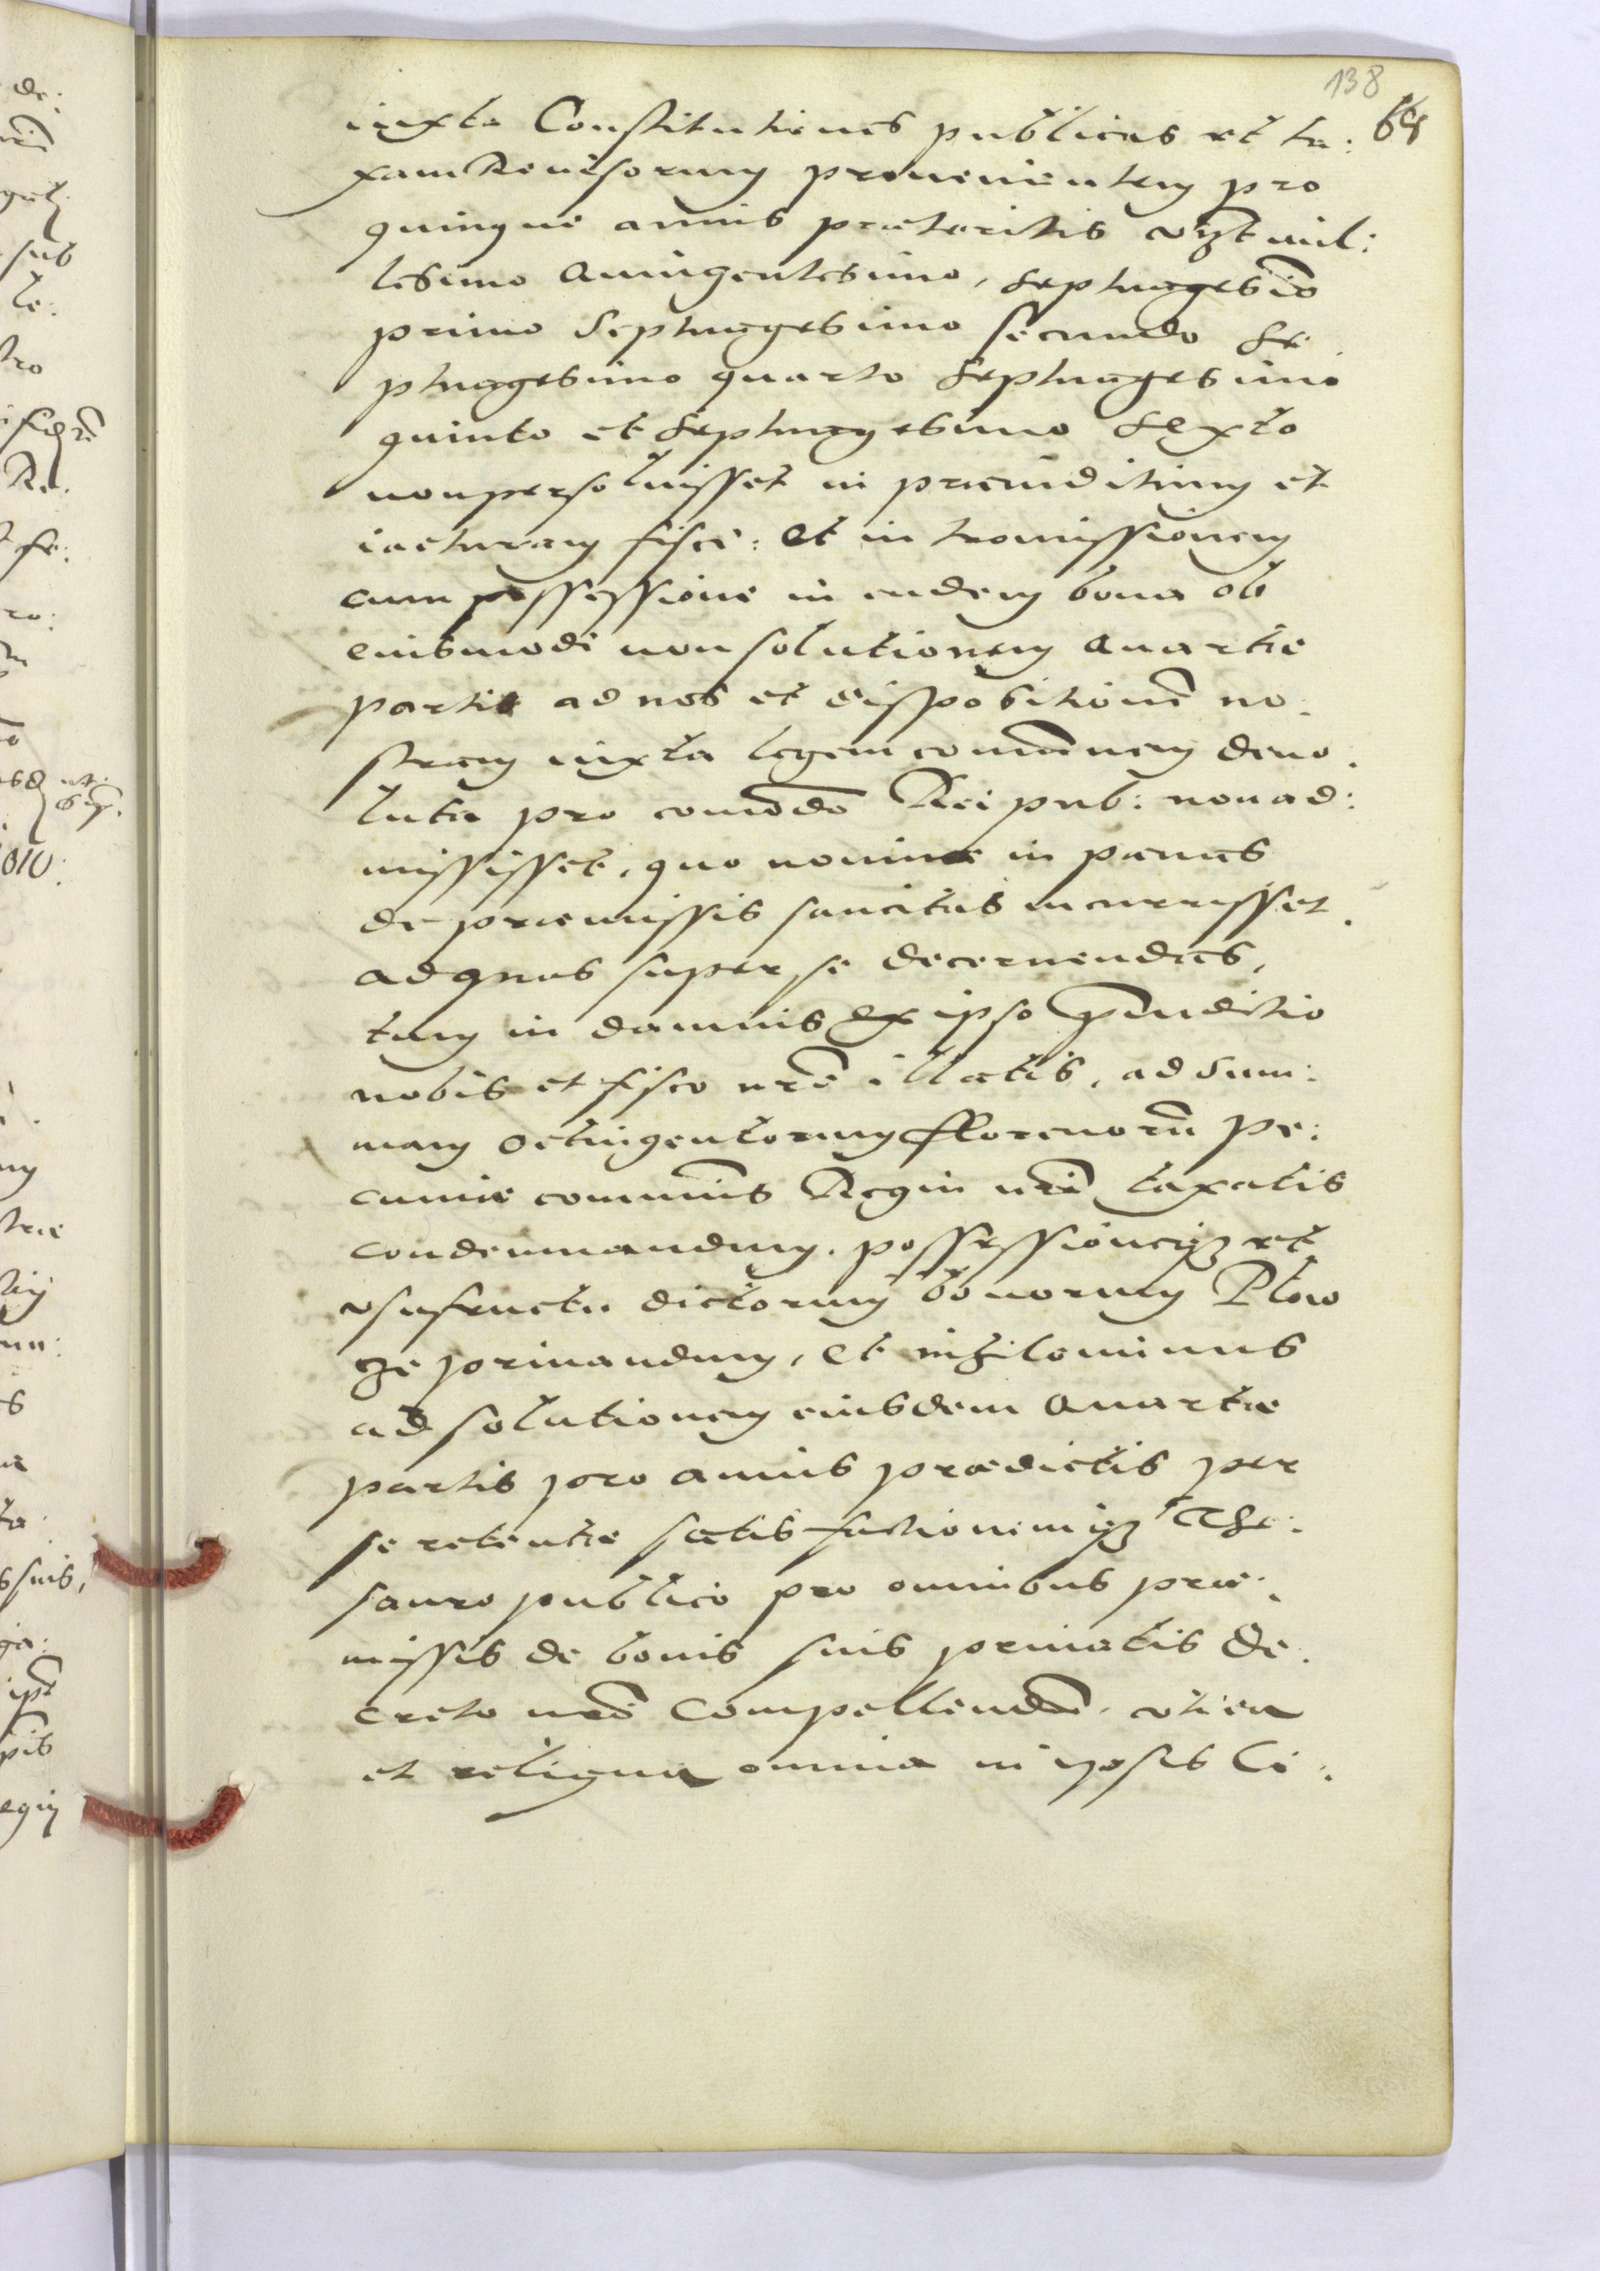 138
69
iuxta Constitutiones publicas et ta:
xam Reuisorum prouenientem pro
quinque annis praeteritis vizt mil:
lesimo Quingentesimo, septuagesīo
primo Septuagesimo secundo se
ptuagesimo quarto septuagesimo
quinto et septuagesimo sexto
non persoluisset in praeiuditium et
iacturam fisci: Et intromissionem
cum possessione in eadem bona ob
eiusmodi non solutionem Quartae
partis ad nos et dispositionē no:
stram iuxta legem comūnem deuo:
luta pro comōdo Rei pub: non ad:
misisset, quo nomine in paenas
de praemissis sancitas incurrisset
ad quas super se decernendas,
tum in damnis ex ipso p̄iuditio
nobis et fisco nr̄o illatis, ad sum:
mam octingentorum florenorū pe:
cuniae communis Regni nr̄i taxatis
condemnandum. possessioneqz et
vsufructu dictorum bonorum Plow
ze priuandum, Et nihilominus
ad solutionem eiusdem Quartae
partis pro annis praedictis per
se retentae satisfactionemqz The:
sauro publico pro omnibus prae:
missis de bonis suis priuatis de:
creto nr̄o compellendū. vti ea
et reliqua omnia in ipsis li: